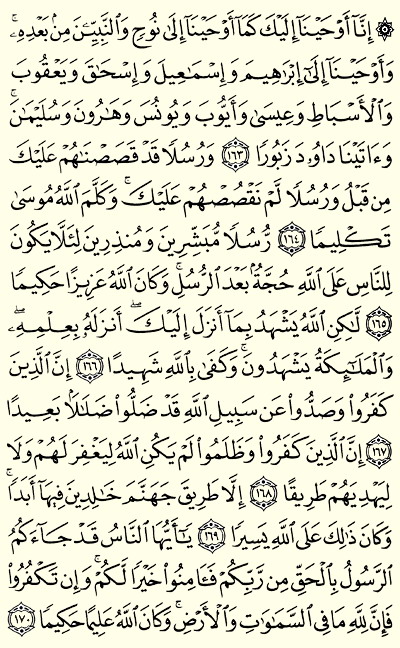 ۞ إِنَّآ أَوْحَيْنَآ إِلَيْكَ كَمَآ أَوْحَيْنَآ إِلَىٰ نُوحٍ وَٱلنَّبِيِّـۧنَ مِنۢ بَعْدِهِۦۚ
وَأَوْحَيْنَآ إِلَىٰٓ إِبْرَٰهِيمَ وَإِسْمَـٰعِيلَ وَإِسْحَـٰقَ وَيَعْقُوبَ
وَٱلْأَسْبَاطِ وَعِيسَىٰ وَأَيُّوبَ وَيُونُسَ وَهَـٰرُونَ وَسُلَيْمَـٰنَۚ
وَءَاتَيْنَا دَاوُۥدَ زَبُورًا ١٦٣ وَرُسُلًا قَدْ قَصَصْنَـٰهُمْ عَلَيْكَ
مِن قَبْلُ وَرُسُلًا لَّمْ نَقْصُصْهُمْ عَلَيْكَۚ وَكَلَّمَ ٱللَّهُ مُوسَىٰ
تَكْلِيمًا ١٦٤ رُّسُلًا مُّبَشِّرِينَ وَمُنذِرِينَ لِئَلَّا يَكُونَ
لِلنَّاسِ عَلَى ٱللَّهِ حُجَّةٌۢ بَعْدَ ٱلرُّسُلِۚ وَكَانَ ٱللَّهُ عَزِيزًا حَكِيمًا
١٦٥ لَّـٰكِنِ ٱللَّهُ يَشْهَدُ بِمَآ أَنزَلَ إِلَيْكَۖ أَنزَلَهُۥ بِعِلْمِهِۦۖ
وَٱلْمَلَـٰٓئِكَةُ يَشْهَدُونَۚ وَكَفَىٰ بِٱللَّهِ شَهِيدًا ١٦٦ إِنَّ ٱلَّذِينَ
كَفَرُوا۟ وَصَدُّوا۟ عَن سَبِيلِ ٱللَّهِ قَدْ ضَلُّوا۟ ضَلَـٰلًۢا بَعِيدًا
١٦٧ إِنَّ ٱلَّذِينَ كَفَرُوا۟ وَظَلَمُوا۟ لَمْ يَكُنِ ٱللَّهُ لِيَغْفِرَ لَهُمْ وَلَا
لِيَهْدِيَهُمْ طَرِيقًا ١٦٨ إِلَّا طَرِيقَ جَهَنَّمَ خَـٰلِدِينَ فِيهَآ أَبَدًاۚ
وَكَانَ ذَٰلِكَ عَلَى ٱللَّهِ يَسِيرًا ١٦٩ يَـٰٓأَيُّهَا ٱلنَّاسُ قَدْ جَآءَكُمُ
ٱلرَّسُولُ بِٱلْحَقِّ مِن رَّبِّكُمْ فَـَٔامِنُوا۟ خَيْرًا لَّكُمْۚ وَإِن تَكْفُرُوا۟
فَإِنَّ لِلَّهِ مَا فِى ٱلسَّمَـٰوَٰتِ وَٱلْأَرْضِۚ وَكَانَ ٱللَّهُ عَلِيمًا حَكِيمًا ١٧٠